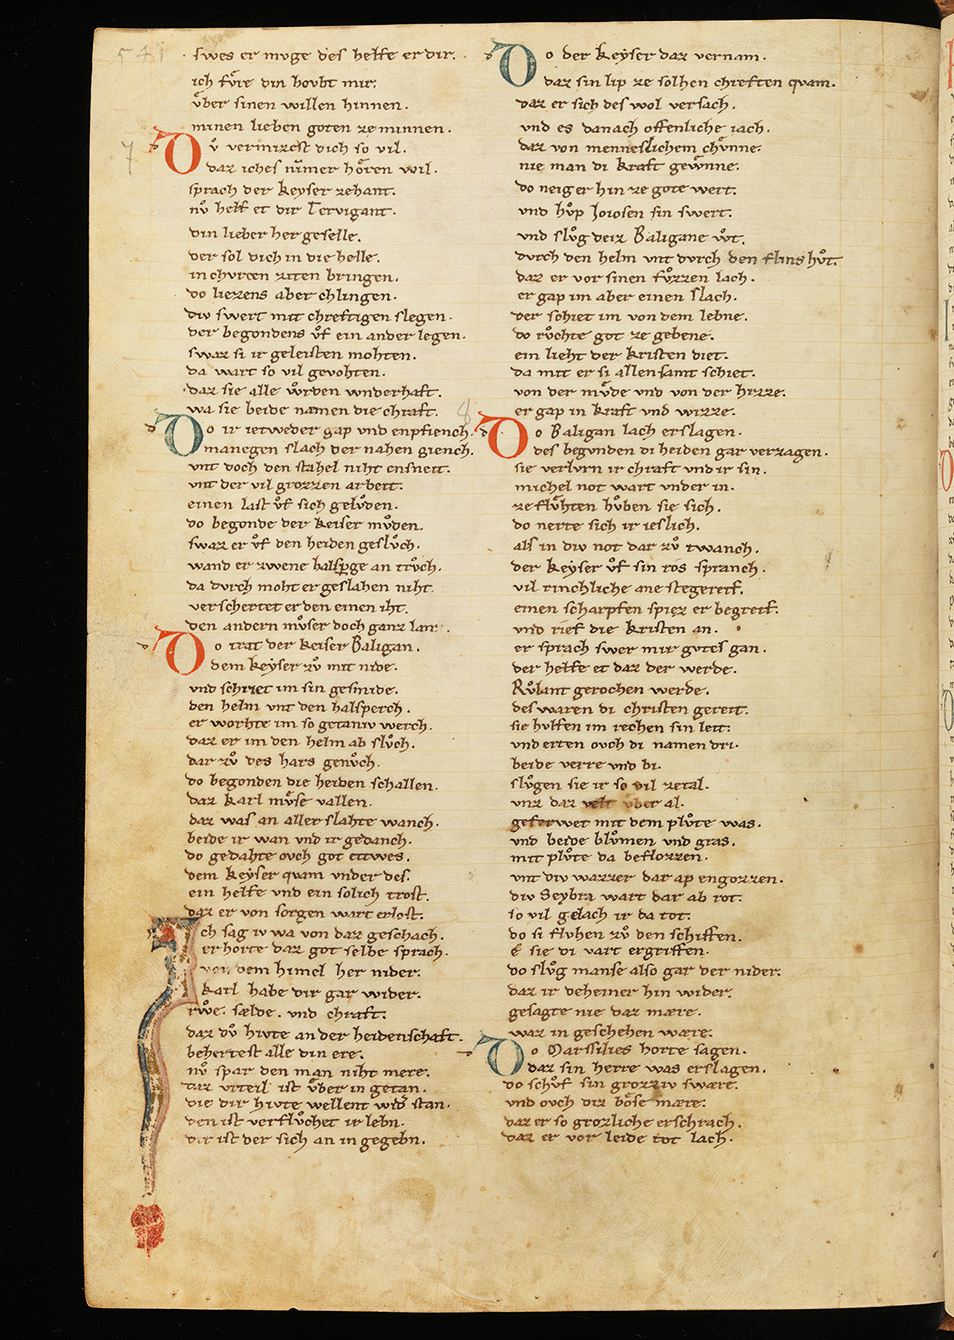 541
swes er mvge des helfe er dir.
ich fv̊re din hovbt mir.
v̊ber sinen willen hinnen.
minen lieben goten ze minnen.
7
Dv̊ vermizest dich so vil.
daz iches nimer hôren wil.
sprach der keyser zehant.
nv̊ helf et dir Tervigant.
din lieber her geselle.
der sol dich in die helle.
in churcen ziten bringen.
do liezens aber chlingen.
div swert mit chreftigen slegen.
der begondens v̊f ein ander legen.
swaz si ir geleisten mohten.
da wart so vil gevohten.
daz sie alle wrden wnderhaft.
wa sie beide namen die chraft.
Do ir ietweder gap vnd enpfiench.
manegen slach der nahen giench.
vnt doch den stahel niht ensneit.
vnt der vil grozzen arbeit.
einen last v̊f sich gelv̊den.
do begonde der keiser mv̊den.
swaz er v̊f den heiden geslv̊ch.
wand er zwene halsperge an trv̊ch.
da dvrch moht er geslahen niht.
verschertet er den einen iht.
den andern mv̊ser doch ganz lan.
Do trat der keiser Baligan.
dem keyser zv̊ mit nide.
vnd schriet im sin gesmide.
den helm vnt den halsperch.
er worhte im so getaniv werch.
daz er im den helm ab slv̊ch.
dar zv̊ des hars genv̊ch.
do begonden die heiden schallen.
daz Karl mv̊se vallen.
daz was an aller slahte wanch.
beide ir wan vnd ir gedanch.
do gedahte ovch got ettwes.
dem keyser quam vnder des.
ein helfe vnd ein solich trost.
daz er von sorgen wart erlost.
Ich sag iv wa von daz geschach.
er horte daz got selbe sprach.
von dem himel her nider.
Karl habe dir gar wider.
rẘe. sælde. vnd chraft.
daz dv̊ hivte an der heidenschaft.
behertest alle din ere.
nv̊ spar den man niht mere.
daz vrteil ist v̊ber in getan.
die dir hivte wellent wider stan.
den ist verflv̊chet ir lebn.
dir ist der sich an in gegebn.
Do der keyser daz vernam.
daz sin lip ze solhen chreften quam.
daz er sich des wol versach.
vnd es danach offenliche iach.
daz von menneslichem chv̊nne.
nie man di kraft gewv̊nne.
do neiger hin ze gote wert.
vnd hv̊p Joiosen sin swert.
vnd slv̊g deiz Baligane wt.
dvrch den helm vnt dvrch den flins hv̊t.
daz er vor sinen fv̊zzen lach.
er gap im aber einen slach.
der schiet im von dem lebne.
do rv̊chte got ze gebene.
ein lieht der kristen diet.
da mit er si allensamt schiet.
von der mv̊de vnd von der hizze.
er gap in kraft vnd wizze.
8
Do Baligan lach erslagen.
des begvnden di heiden gar verzagen.
sie verlvrn ir chraft vnd ir sin.
michel not wart vnder in.
ze flv̊hten hv̊ben sie sich.
do nerte sich ir ieslich.
als in div not dar zv̊ twanch.
der keyser v̊f sin ros spranch.
vil rinchliche ane stegereif.
einen scharpfen spiez er begreif.
vnd rief die kristen an.
er sprach swer mir gvtes gan.
der helfe et daz der werde.
Rv̊lant gerochen werde.
des waren di christen gereit.
sie hvlfen im rechen sin leit.
vnd erten ovch di namen dri.
beide verre vnd bi.
slv̊gen sie ir so vil zetal.
vnz daz velt v̊ber al.
geferwet mit dem plv̊te was.
vnd beide blv̊men vnd gras.
mit plv̊te da beflozzen.
vnt div wazzer dar ap engozzen.
div Seybra wart dar ab rot.
so vil gelach ir da tot.
do si flvhen zv̊ den schiffen.
E sie di vart ergriffen.
do slv̊g manse also gar der nider.
daz ir deheiner hin wider.
gesagte nie daz mære.
waz in geschehen wære.
Do Marssilies horte sagen.
daz sin herre was erslagen.
do schv̊f sin grozziv swære.
vnd ovch diz bôse mære.
daz er so grozliche erschrach.
daz er vor leide tot lach.